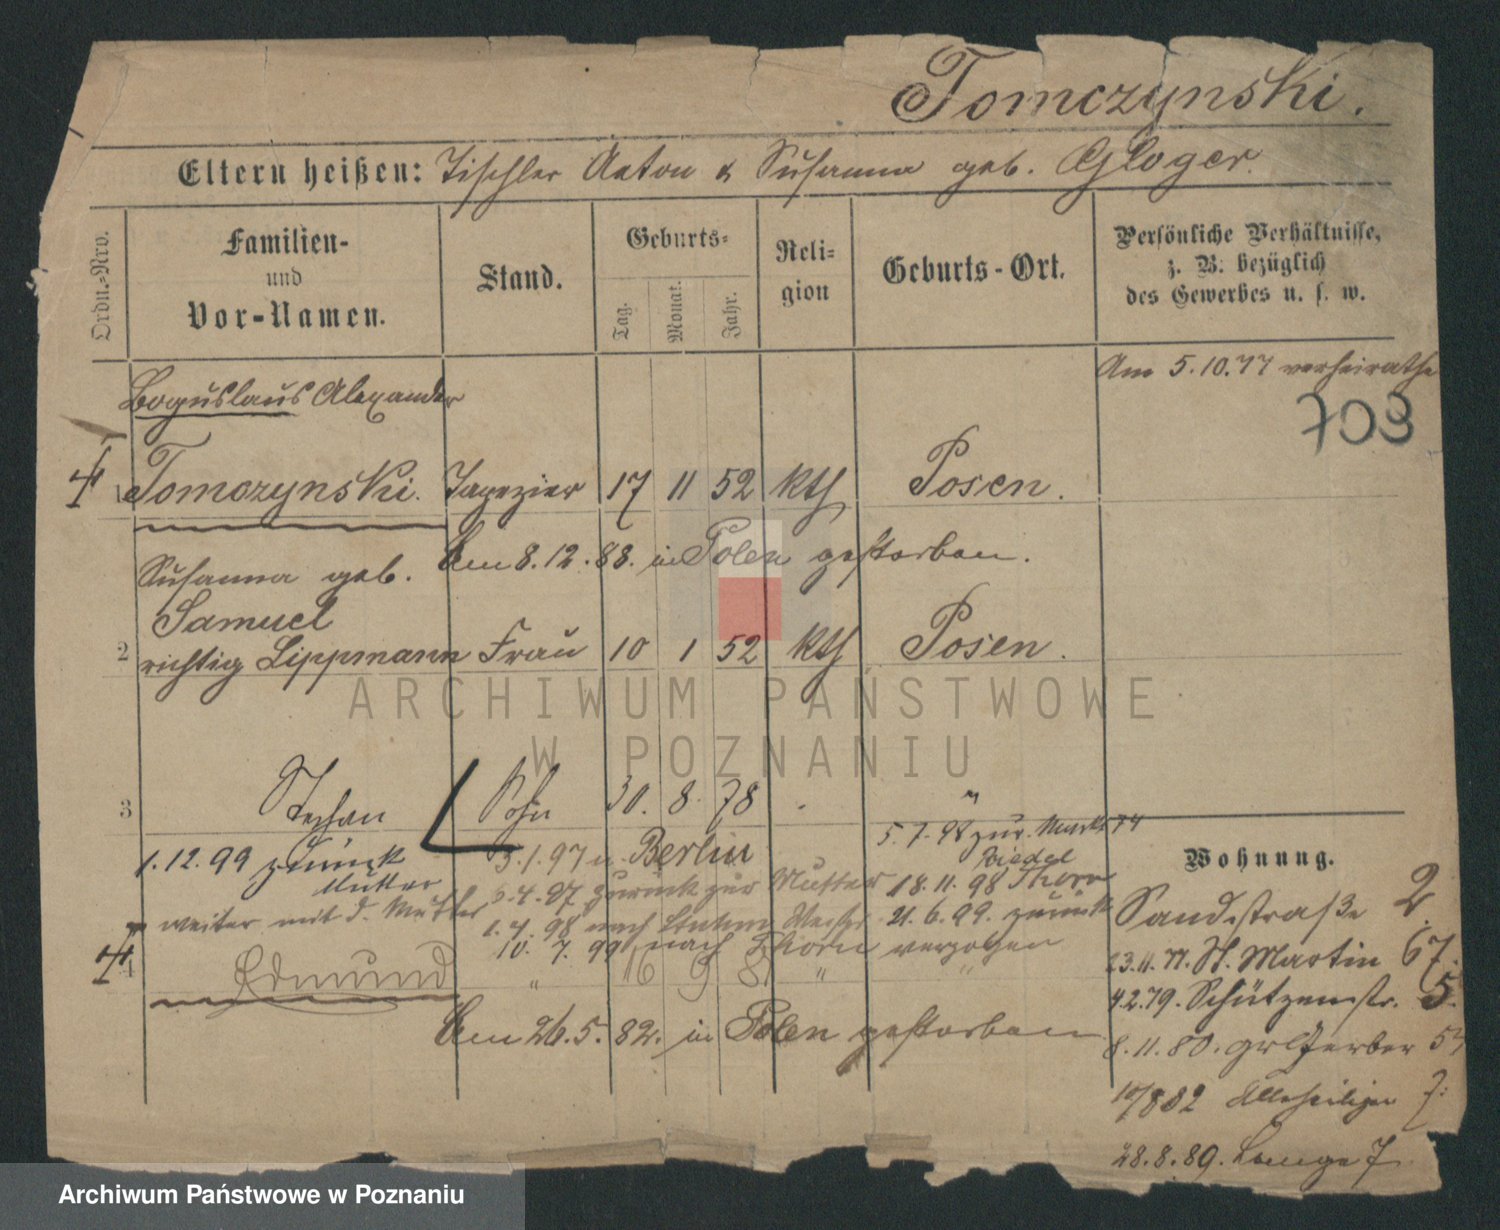 Tomczynski.
Eltern heißen: Tischler Anton & Susanna geb. Gloger.
Ordn.-Nro.
Familien-
und
Vor-Namen.
Stand.
Geburts-
Tag.
Monat.
Jahr.
Reli-
gion
Geburts-Ort.
Persönliche Verhältnisse,
z. B. bezüglich
des Gewerbes u. s. w.
Am 5.10.77 verheirathe
703
Boguslaus Alexander
1 Tomczynski. Tapezier 17 11 52 kth Posen.
Am 8.12.88. in Polen gestorben.
Susanna geb.
Samuel
2 richtig Lippmann Frau 10 1 52 kth Posen.
3 Stephan Sohn 30. 8. 78 "
5.7.98 zur
1.12.99 zurück 3.1.97 n. Berlin
Mutter 6.4.97 zurück zur Mutter 18.11.98 Thorn
weiter mit d. Mutter 1.4.98 nach 21.6.99. zurück
10.7.99 nach Thorn verzogen
4 Edmund " 16 9 81 " "
Am 26.5.82. in Polen gestorben
Wohnung.
Sandstraße 2.
23.11.77. St. Martin 67.
4.2.79. Schützenstr. 5.
8.11.80. gr Gerber
10/8 82 Allerheiligen 7.
28.8.89. Lange 7
ARCHIWUM PAŃSTWOWE
W POZNANIU
Archiwum Państwowe w Poznaniu